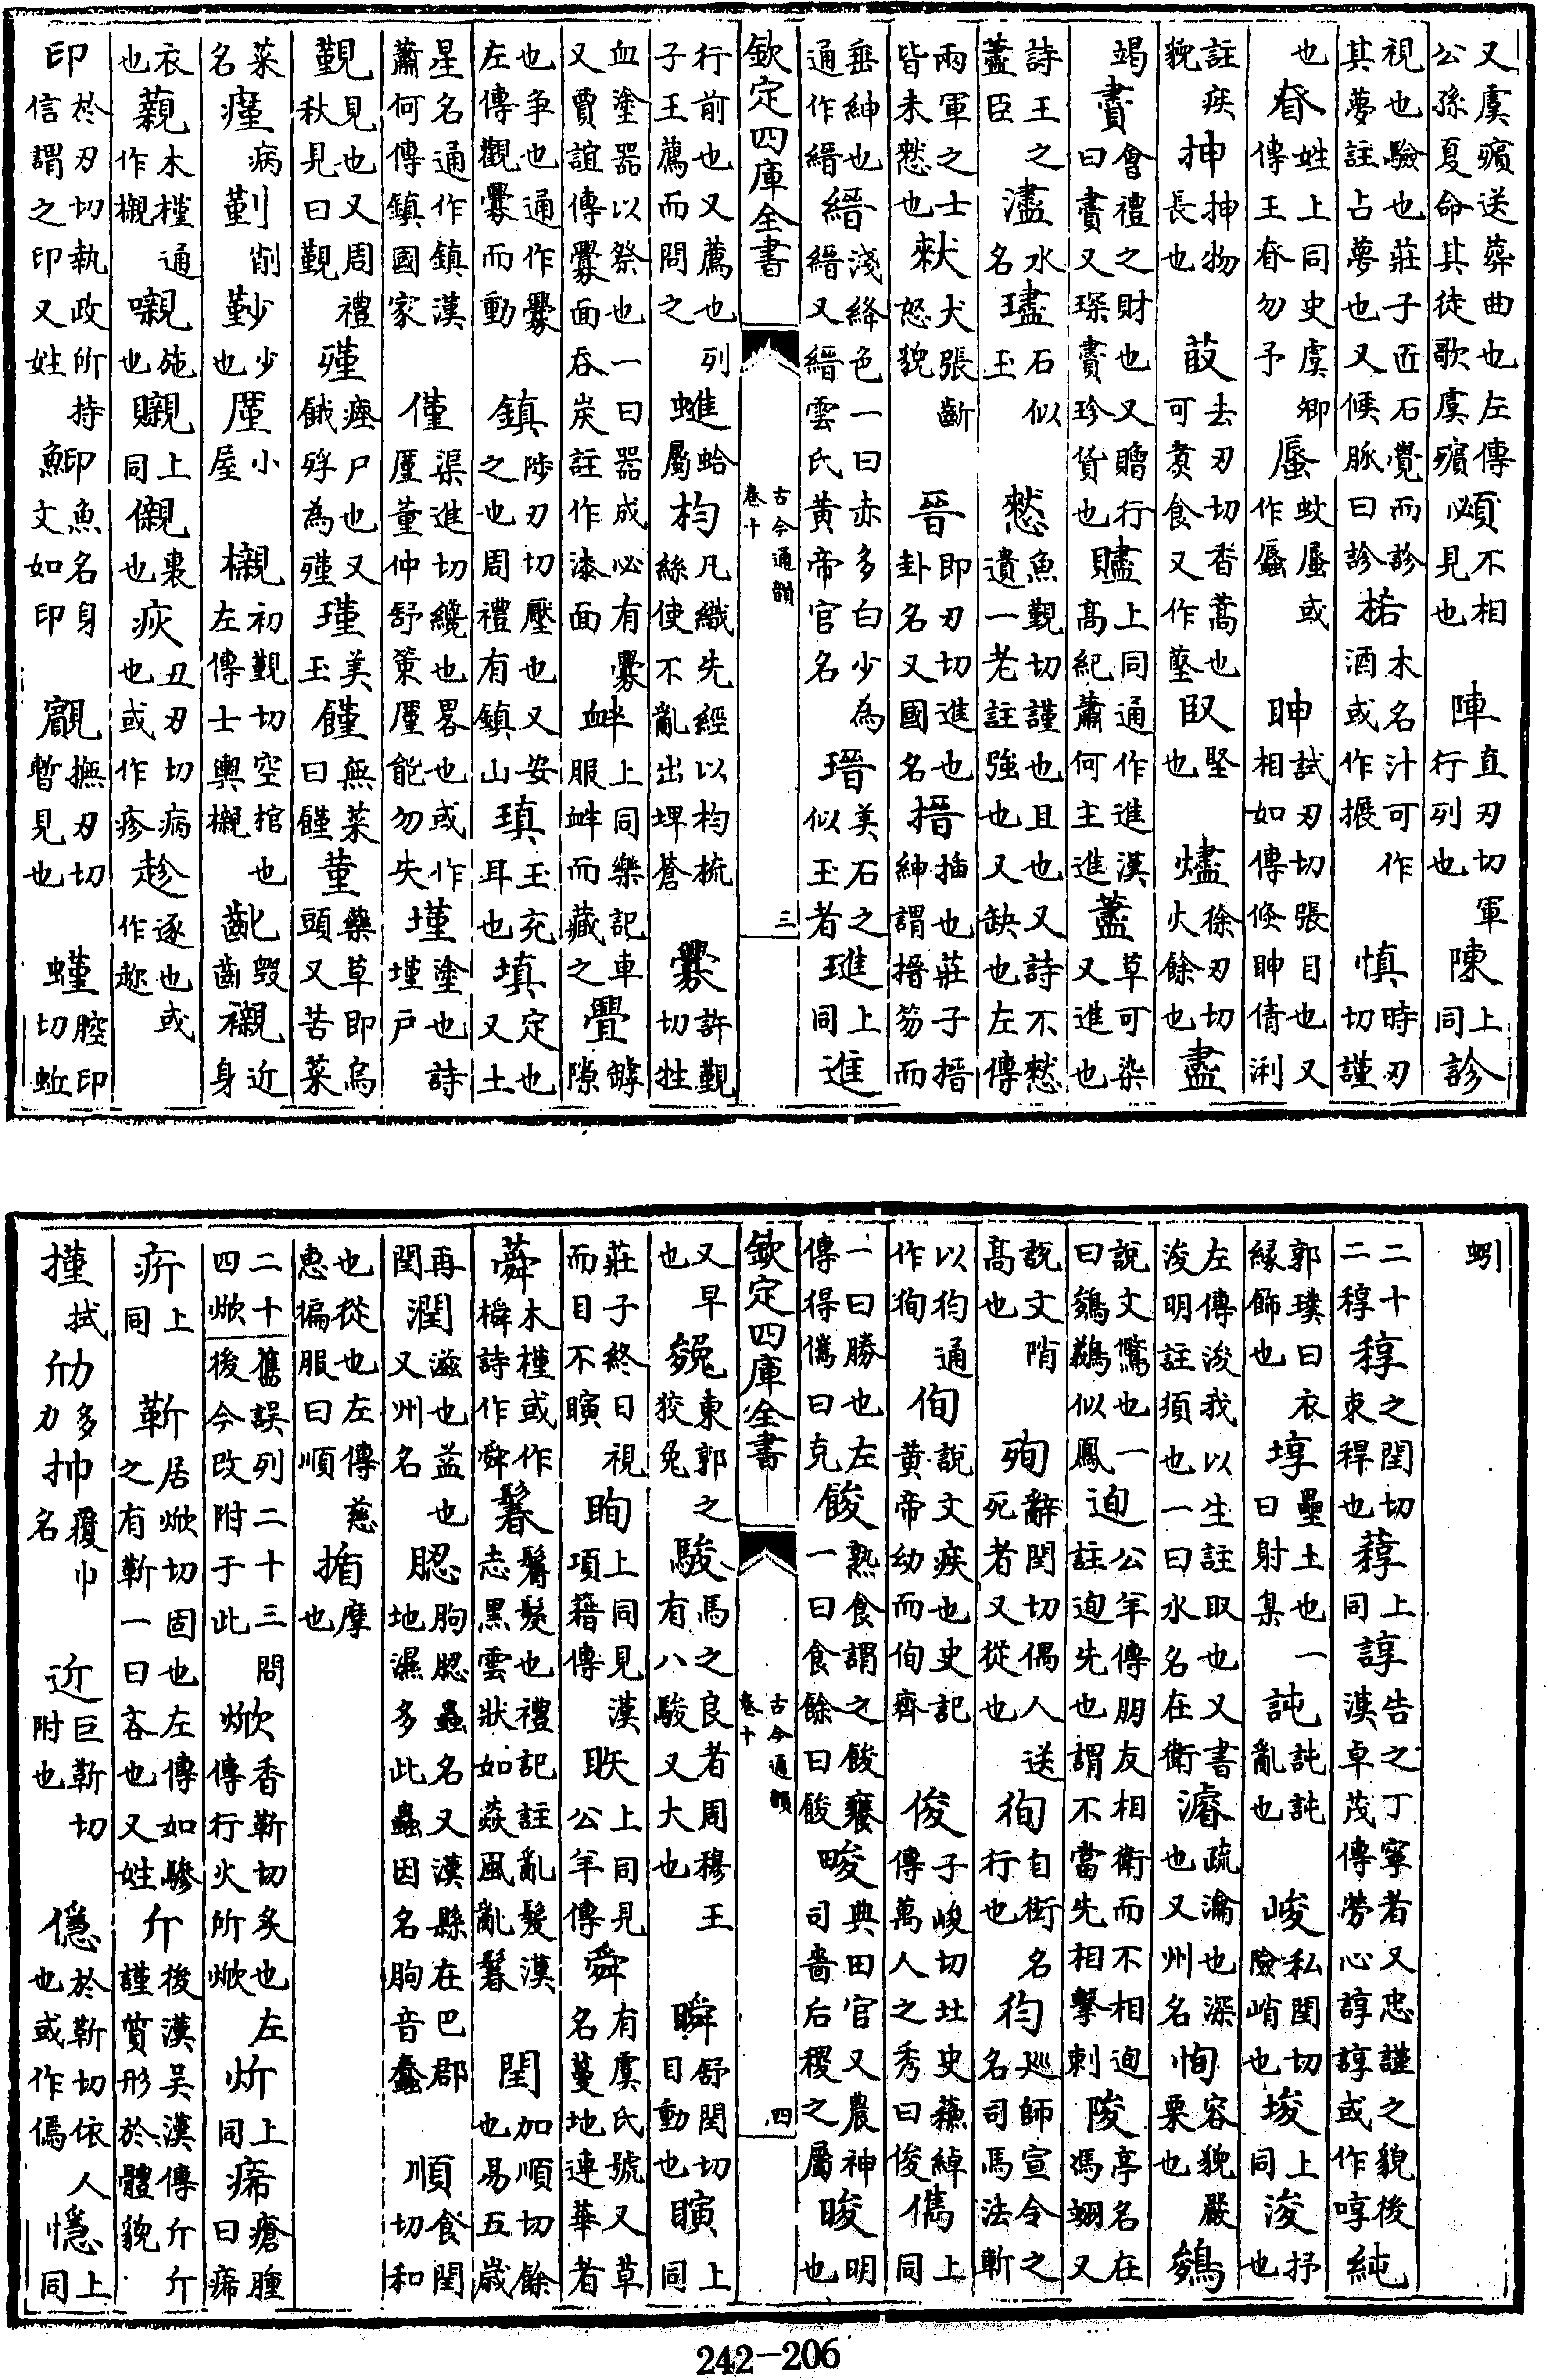 又虞殯送葬曲也左傳公孫夏命其徒歌虞殯不相見也陣直刃切軍行列也陳上同診
視也驗也莊子匠石覺而診其夢註占夢也又候脈曰診木名汁可作酒或作搌慎時刃切謹
也昚姓上同史虞卿傳王昚勿予蜃蚊蜃或作蜃眒試刃切張目也又相如傳倏眒倩浰
註疾貌抻抻物長也菣去刃切香蒿也可煑食又作藖臤堅也燼徐刃切火餘也盡
竭賮會禮之財也又贈行曰賮又琛賮珍貨也贐上同通作進漢高紀蕭何主進藎草可染又進也
詩王之藎臣濜水名璶石似玉憖魚覲切謹也且也又詩不憖遺一老註強也又缺也左傳
兩軍之士皆未憖也猌犬張齗怒貌晉即刃切進也卦名又國名搢插也莊子搢紳謂搢笏而
垂紳也通作縉縉淺絳色一曰赤多白少為縉又縉雲氏黃帝官名瑨美石之似玉者璡上同進
欽定四庫全書 古今通韻卷十 三
行前也又薦也列子王薦而問之蛤屬枃凡織先經以枃梳絲使不亂出埤蒼釁許覲切牲
血塗器以祭也一曰器成必有釁又賈誼傳釁面吞炭註作漆面衅上同樂記車服衅而藏之舋罅隙
也爭也通作釁左傳觀釁而動鎮陟刃切壓也又安之也周禮有鎮山瑱玉充耳也填定也又土
星名通作鎮漢蕭何傳鎮國家僅渠進切纔也畧也或作厪董仲舒策厪能勿失墐塗也詩墐戶
覲見也又周禮秋見曰覲殣瘞尸也又餓殍為殣瑾美玉饉無菜曰饉菫藥草即烏頭又苦菜
菜名病削少也厪小屋櫬初覲切空棺也左傳士輿櫬齔毀齒襯近身
衣也藽木槿通作櫬嚫施也上同儭裏也疢丑刃切病也或作疹趁逐也或作趂
印於刃切執政所持印信謂之印又姓鮣魚名身文如印撫刃切暫見也螼腔印切蚯
蚓
二十二稕之閏切束稈也上同諄告之丁寧者又忠謹之貌後漢卓茂傳勞心諄諄或作啍純
郭璞曰衣緣飾也埻壘土也一曰射集訰訰訰亂也峻私閏切險峭也埈上同浚抒也
左傳浚我以生註取也又書浚明註須也一曰水名在衛濬疏瀹也深也又州名恂容貌嚴栗也鵕
說文驚也一曰鵕鸃似鳳迿公羊傳朋友相衛而不相迿註迿先也謂不當先相擊刺陖亭名在馮翊又
說文陗高也殉辭閏切偶人送死者又從也狥自衒名行也徇巡師宣令之名司馬法斬
以徇通作狥侚說文疾也史記黃帝幼而侚齊俊子峻切北史蘇綽傳萬人之秀曰俊儁上同
一曰勝也左傳得儁曰克餕熟食謂之餕饔一曰食餘曰餕畯典田官又農神司嗇后稷之屬晙明也
欽定四庫全書 古今通韻卷十 四
又早也㕙東郭之狡兔駿馬之良者周穆王有八駿又大也瞬舒閏切目動也瞚上同
莊子終日視而目不瞚眴上同見漢項籍傳眣上同見公羊傳舜有虞氏號又草名蔓地連華者
蕣木槿或作橓詩作舜鬊鬌髮也禮記註亂髮漢志黑雲狀如猋風亂鬊閏加順切餘也易五歲
再閏潤滋也益也又州名䏰朐䏰蟲名又漢縣在巴郡地濕多此蟲因名朐音蠢順食閏切和
也從也左傳慈惠徧服曰順揗摩也
二十四焮舊誤列二十三問後今改附于此焮香靳切炙也左傳行火所焮炘上同瘡腫曰
上同靳居焮切固也左傳如驂之有靳一曰吝也又姓斤後漢吳漢傳斤斤謹質形於體貌
拭劤多力覆巾名近巨靳切附也於靳切依人也或作上同
242-206